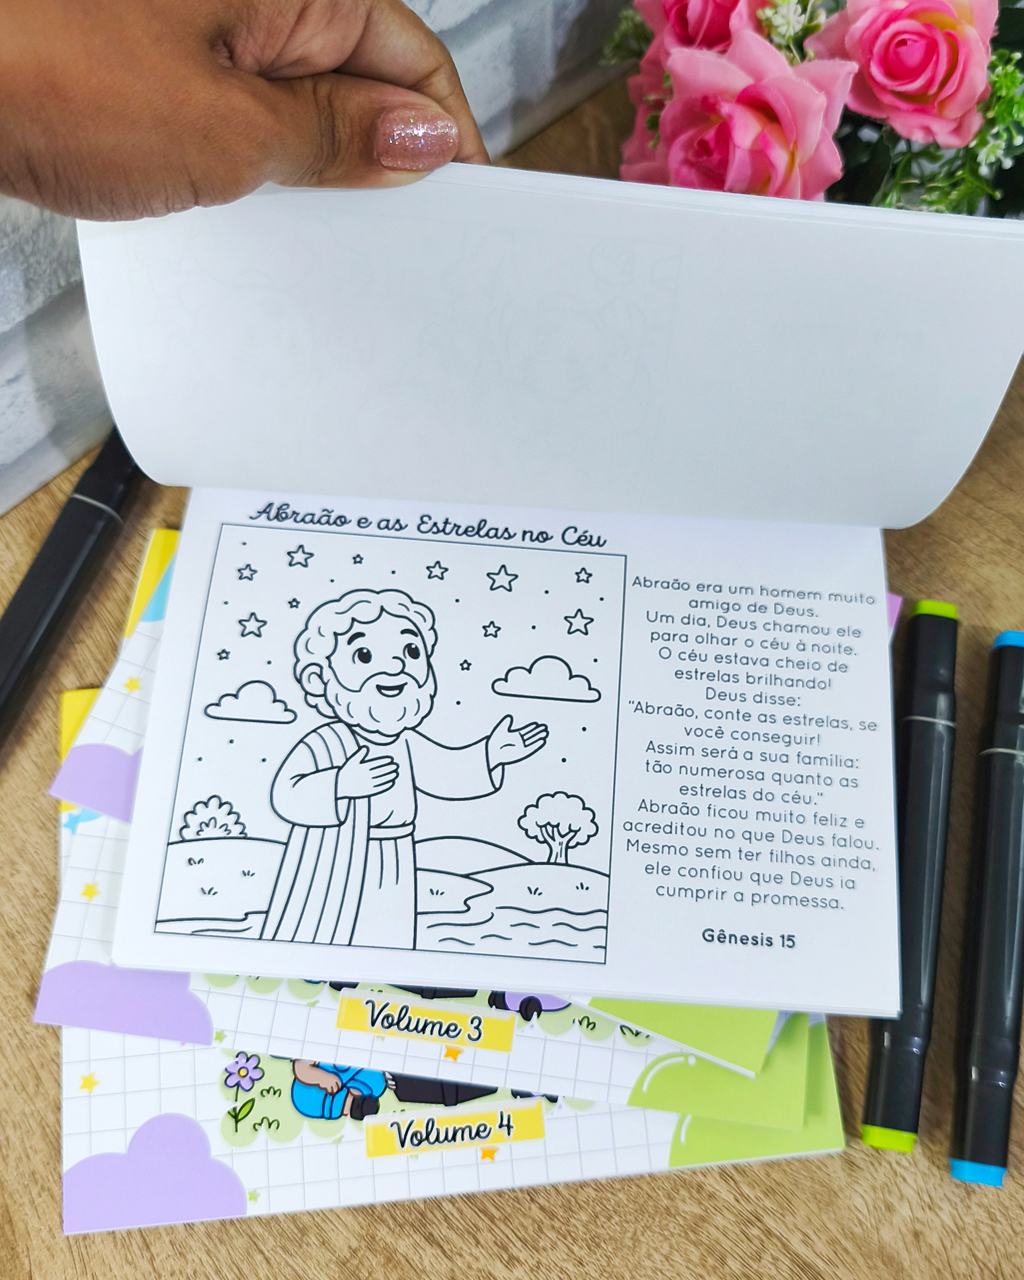 Abraão e as Estrelas no Céu
Abraão era um homem muito
amigo de Deus.
Um dia, Deus chamou ele
para olhar o céu à noite.
O céu estava cheio de
estrelas brilhando!
Deus disse:
"Abraão, conte as estrelas, se
você conseguir!
Assim será a sua família:
tão numerosa quanto as
estrelas do céu."
Abraão ficou muito feliz e
acreditou no que Deus falou.
Mesmo sem ter filhos ainda,
ele confiou que Deus ia
cumprir a promessa.
Gênesis 15
Volume 3
Volume 4